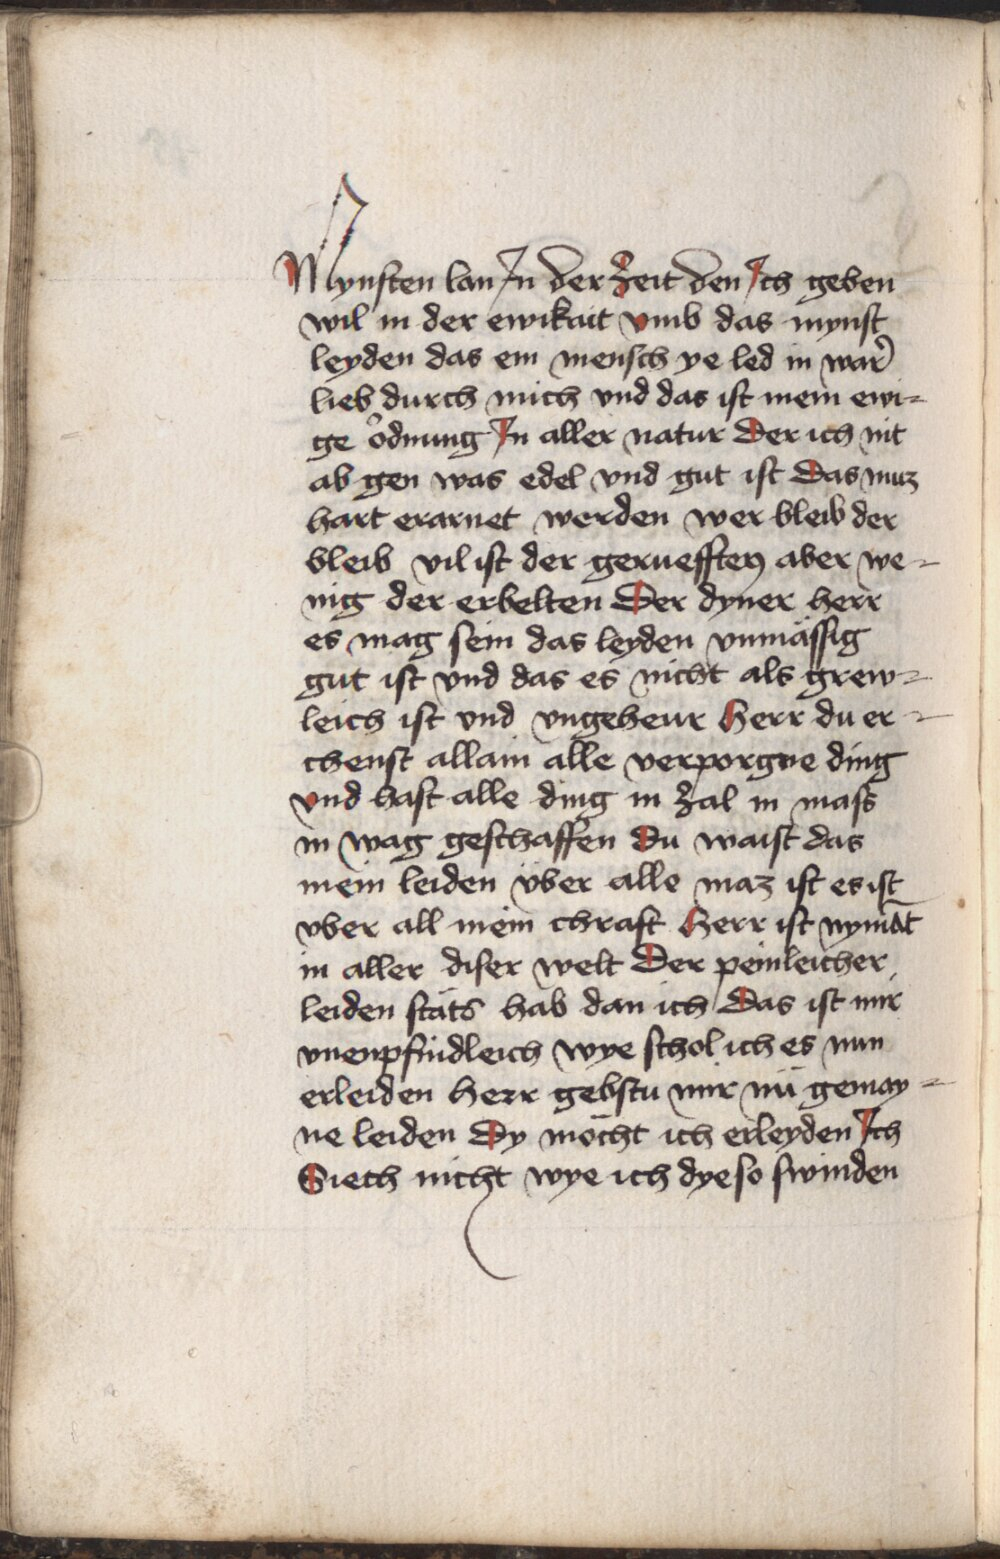 Mynsten lon In der Zeit den Ich geben
wil in der ewikait vmb das mynst
leyden das ein mensch ye led in war̉
lieb durch mich vnd das ist mein ewi=
ge oͦdnung In aller natur Der ich nit
ab gen was edel vnd gut ist Das muz
hart erarnet werden wer bleib der
bleib vil ist der gerueffteñ aber we=
nig der erbelten Der dyner herr
es mag sein das leyden vnmässig
gut ist vnd das es nicht als grew=
leich ist vnd vngeheur Herr du er=
chenst allain alle verporgne ding
vnd hast alle ding in Zal in mass
in wag geschaffen Du waist das
mein leiden über alle maz ist es ist
vber all mein chraft Herr ist nymāt
in aller diser welt Der peinleicher
leiden stäts hab dan ich Das ist mir
vnenpfindleich wye schol ich es nun
erleiden Herr gebstu mir nü gemay=
ne leiden Dy möcht ich erleyden Ich
Siech nicht wye ich dye so swinden